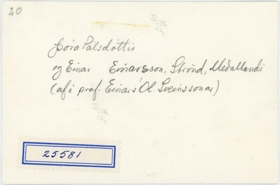 20
Þóra Pálsdóttir
og Einar Einarsson, Strönd, Meðallandi
(afi prof. Einars Ól. Sveinssonar)
25581